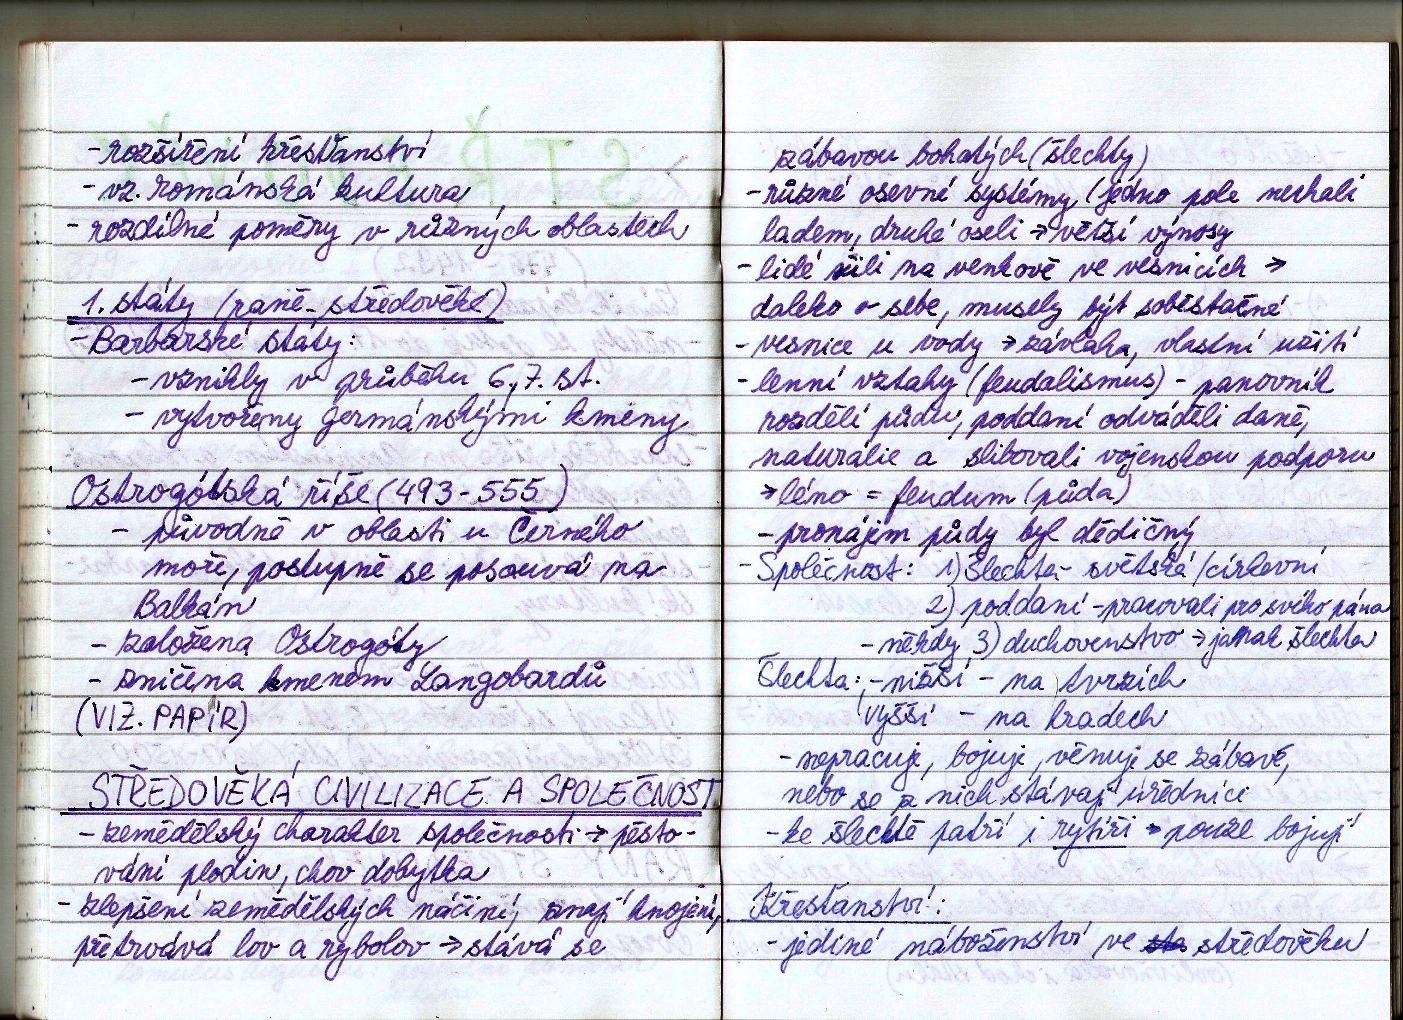 -rozšíření křesťanství
-vz. románská kultura
- rozdílné poměry v různých oblastech
1. státy (raně středověké)
-Barbarské státy:
- vznikly v průběhu 6,7. st.
- vytvořeny germánskými kmeny
Ostrogótská říše (493-555)
- původně v oblasti u Černého
moře, postupně se posouvá na
Balkán
- založena Ostrogóty
- zničena kmenem Langobardů
(VIZ. PAPÍR)
STŘEDOVĚKÁ CIVILIZACE A SPOLEČNOST
- zemědělský charakter společnosti → pěsto-
vání plodin, chov dobytka
- zlepšení zemědělských náčiní, znají hnojení,
přetrvává lov a rybolov → stává se
zábavou bohatých (šlechty)
- různé osevné systémy (jedno pole nechali
ladem, druhé oseli → větší výnosy
- lidé žili na venkově ve vesnicích →
daleko o sebe, musely být soběstačné
- vesnice u vody → závlaha, vlastní užití
- lenní vztahy (feudalismus) - panovník
rozdělí půdu, poddaní odváděli daně,
naturálie a slibovali vojenskou podporu
→ léno = feudum (půda)
- pronájem půdy byl dědičný
- Společnost: 1) šlechta - světská/církevní
2) poddaní - pracovali pro svého pána
- někdy 3) duchovenstvo → jinak šlechta
Šlechta: - nižší - na tvrzích
vyšší - na hradech
- nepracuje, bojuje, věnuje se zábavě,
nebo se z nich stávají úředníci
- ke šlechtě patří i rytíři → pouze bojují
Křesťanství:
- jediné náboženství ve středověku